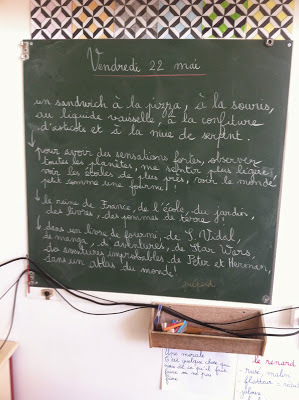 Vendredi 22 mai
un sandwich à la pizza, à la souris,
au liquide vaisselle, à la confiture
d'asticots et à la mue de serpent.
↓ pour avoir des sensations fortes, observer
toutes les planètes, me sentir plus léger,
voir les étoiles de plus près, voir le monde
petit comme une fourmi!
↓ la reine de France, de l'école, du jardin,
des livres, des pommes de terre!
↓ dans un livre de fourmi, de S. Vidal,
de manga, d'aventures, de Star Wars,
des aventures improbables de Peter et Herman,
dans un atlas du monde!
Une morale
C'est quelque chose que
faire ou ne pas
faire
le renard
- rusé, malin